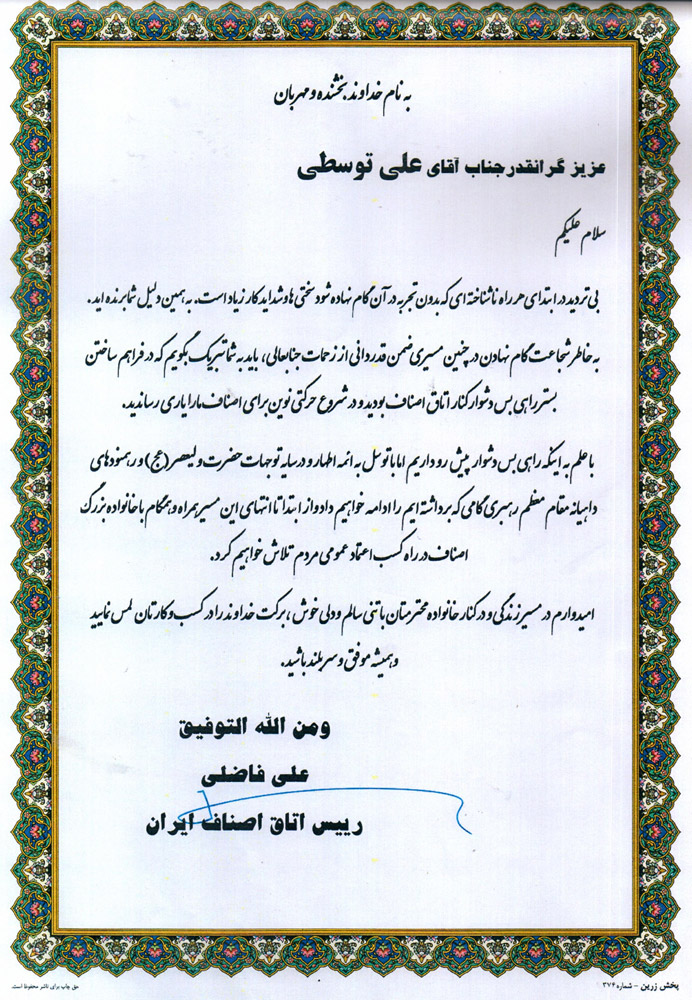 به نام خداوند بخشنده و مهربان
عزیز گرانقدر جناب آقای علی توسطی
سلام علیکم
بی تردید در ابتدای هر راه ناشناخته ای که بدون تجربه در آن گام نهاده شود سختی ها و شداید کار زیاد است. به همین دلیل شما برنده اید.
به خاطر شجاعت گام نهادن در چنین مسیری ضمن قدردانی از زحمات جنابعالی، باید به شما تبریک بگویم که در فراهم ساختن
بستر راهی بس دشوار کنار اتاق اصناف بودید و در شروع حرکتی نوین برای اصناف ما را یاری رساندید.
با علم به اینکه راهی بس دشوار پیش رو داریم اما با توسل به ائمه اطهار و در سایه توجهات حضرت ولیعصر (عج) و رهنمودهای
داهیانه مقام معظم رهبری گامی که برداشته ایم را ادامه خواهیم داد و از ابتدا تا انتهای این مسیر همراه و همگام با خانواده بزرگ
اصناف در راه کسب اعتماد عمومی مردم تلاش خواهیم کرد.
امیدوارم در مسیر زندگی و در کنار خانواده محترمتان با تنی سالم و دلی خوش، برکت خداوند را در کسب و کارتان لمس نمایید
و همیشه موفق و سربلند باشید.
ومن الله التوفیق
علی فاضلی
رییس اتاق اصناف ایران
پخش زرین - شماره ۳۷۶
حق چاپ برای ناشر محفوظ است.